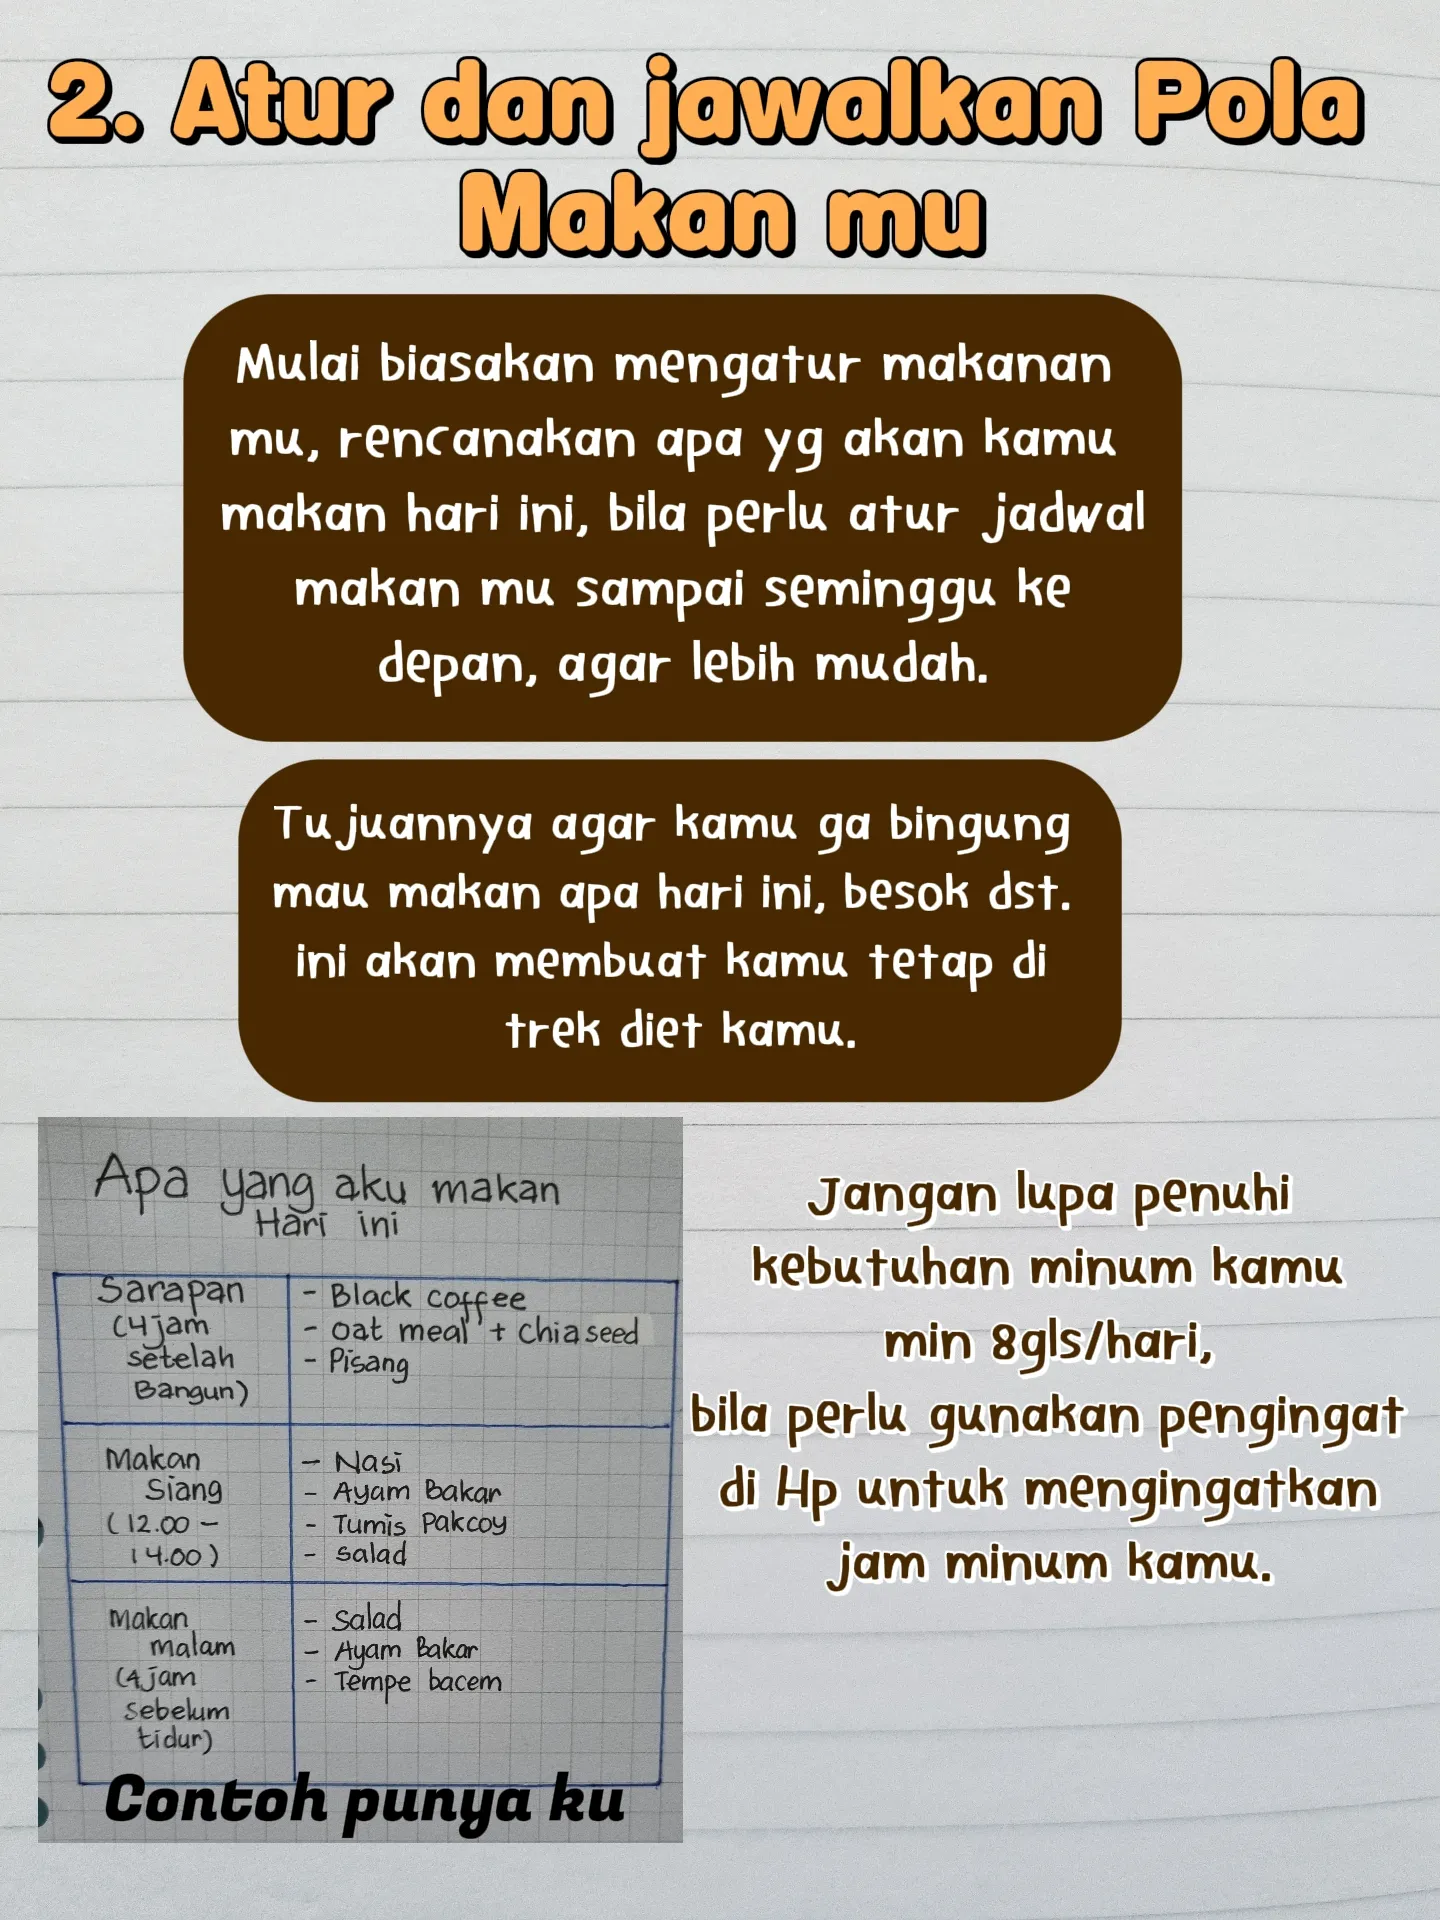 2. Atur dan jawalkan Pola
Makan mu
Mulai biasakan mengatur makanan
mu, rencanakan apa yg akan kamu
makan hari ini, bila perlu atur jadwal
makan mu sampai seminggu ke
depan, agar lebih mudah.
Tujuannya agar kamu ga bingung
mau makan apa hari ini, besok dst.
ini akan membuat kamu tetap di
trek diet kamu.
Apa yang aku makan
Hari ini
Sarapan
(4 jam
setelah
Bangun)
- Black coffee
- oat meal + chia seed
- Pisang
Makan
Siang
(12.00 -
14.00)
- Nasi
- Ayam Bakar
- Tumis Pakcoy
- salad
Makan
malam
(4 jam
sebelum
tidur)
- Salad
- Ayam Bakar
- Tempe bacem
Contoh punya ku
Jangan lupa penuhi
kebutuhan minum kamu
min 8gls/hari,
bila perlu gunakan pengingat
di Hp untuk mengingatkan
jam minum kamu.